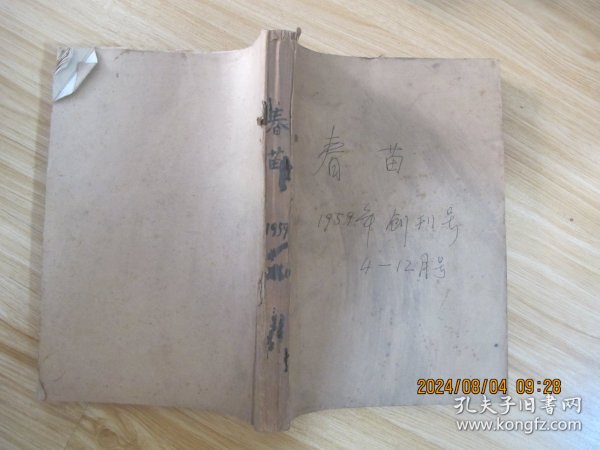 春苗
1959
春 苗
1959年创刊号
4-12月号
2024/08/04 09:28
孔夫子旧书网
www.kongfz.com